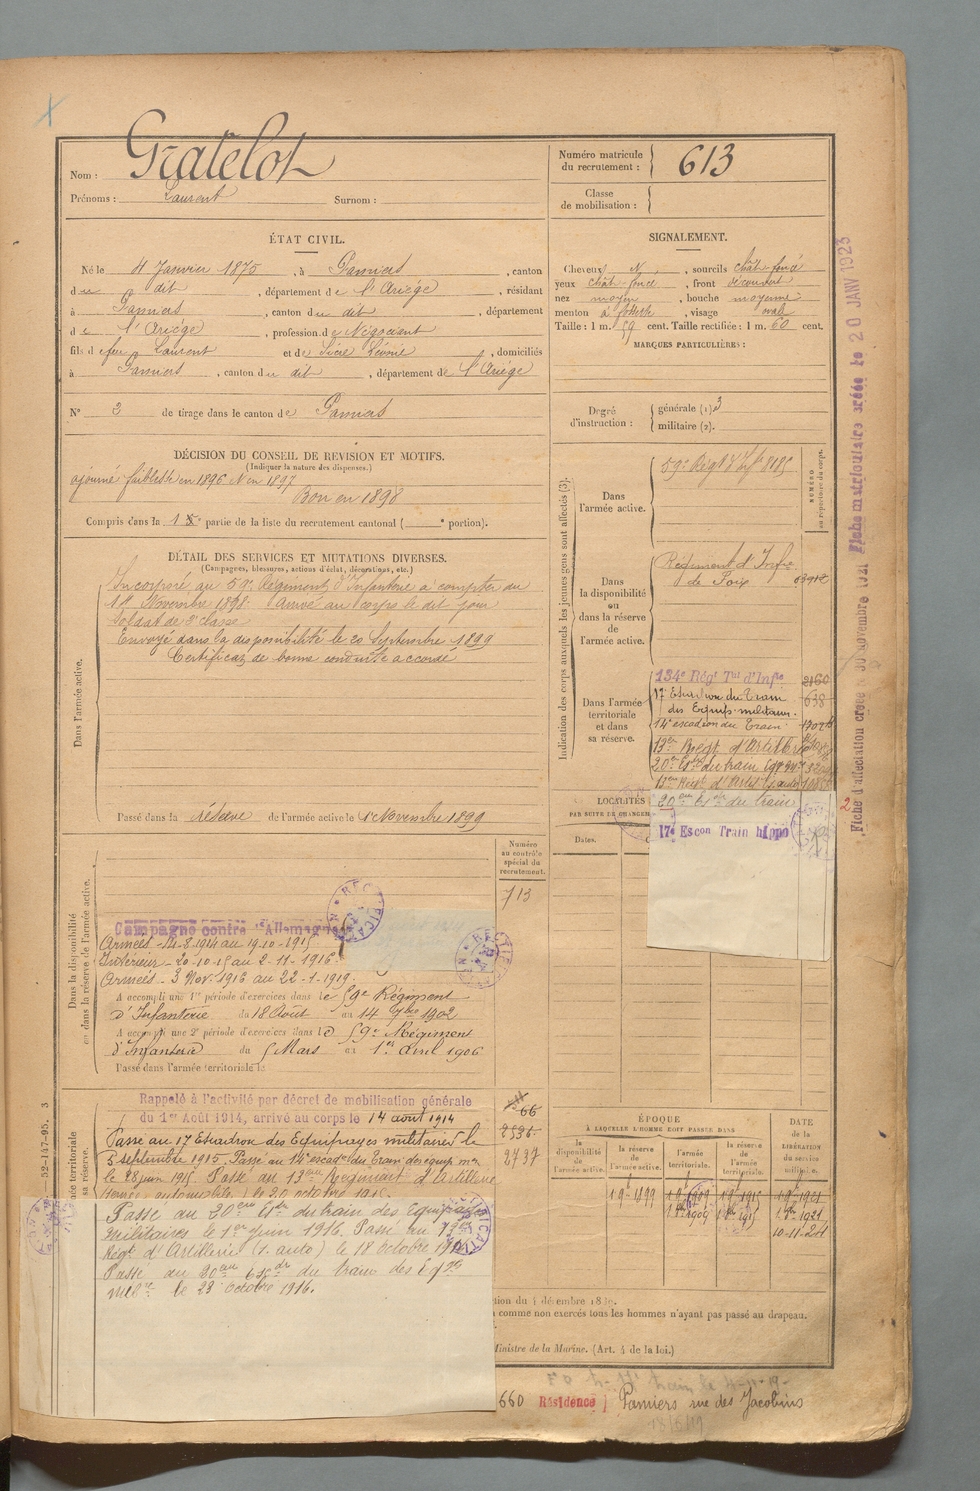 Nom : Gratelot
Prénoms : Laurent Surnom :
Numéro matricule du recrutement : 613
Classe de mobilisation :
ÉTAT CIVIL.
Né le 4 Janvier 1875, à Pamiers, canton
du dit, département de l'Ariège, résidant
à Pamiers, canton du dit, département
de l'Ariège, profession de Négociant
fils de feu Laurent et de Sicre Léonie, domiciliés
à Pamiers, canton du dit, département de l'Ariège
N° 2 de tirage dans le canton de Pamiers
SIGNALEMENT.
Cheveux N, sourcils chât foncé
yeux chât foncé, front découvert
nez moyen, bouche moyenne
menton à fossette, visage oval
Taille : 1 m. 59 cent. Taille rectifiée : 1 m. 60 cent.
MARQUES PARTICULIÈRES :
Degré d'instruction : générale (1). 3
militaire (2).
DÉCISION DU CONSEIL DE REVISION ET MOTIFS.
(Indiquer la nature des dispenses.)
ajourné faiblesse en 1896 & en 1897
Bon en 1898
Compris dans la 1e partie de la liste du recrutement cantonal ( e portion).
DÉTAIL DES SERVICES ET MUTATIONS DIVERSES.
(Campagnes, blessures, actions d'éclat, décorations, etc.)
Dans l'armée active.
Incorporé au 59e Régiment d'Infanterie à compter du
14 Novembre 1898. Arrivé au corps le dit jour
Soldat de 2e classe
Envoyé dans la disponibilité le 20 Septembre 1899
Certificat de bonne conduite accordé
Passé dans la réserve de l'armée active le 1 Novembre 1899
Indication des corps auxquels les jeunes gens sont affectés (3).
NUMÉRO au répertoire du corps.
Dans l'armée active.
59e Régt d'Infie 8185
Dans la disponibilité ou dans la réserve de l'armée active.
Régiment d'Infie
de Foix
Dans l'armée territoriale et dans sa réserve.
134e Régt Tal d'Infie 2160
17e Escadron du Train 638
des Equip. militaires.
14e escadron du Train
13e Régt. d'Artillerie
20e Esc du train
13e Régt d'Artil
20e Esc du train
17e Escon Train hippo
LOCALITÉS
PAR SUITE DE CHANGEM
Dates.
Dans la disponibilité ou dans la réserve de l'armée active.
Numéro au contrôle spécial du recrutement.
713
Campagne contre l'Allemagne
Armées - 14-8-1914 au 19-10-1915
Intérieur - 20-10-15 au 2-11-1916.
Armées - 3 Nov. 1916 au 22-1-1919.
A accompli une 1re période d'exercices dans le 59e Régiment
d'Infanterie du 18 Août au 14 7bre 1902
A accompli une 2e période d'exercices dans le 59e Régiment
d'Infanterie du 5 Mars au 1er Avril 1906
Passé dans l'armée territoriale le
Rappelé à l'activité par décret de mobilisation générale
du 1er Août 1914, arrivé au corps le 14 août 1914
66
2536
2737
Passé au 17 Escadron des Equipages militaires le
5 septembre 1915. Passé au 14e escadon du Train des équip. mres
le 28 juin 1915. Passé au 13e Régiment d'Artillerie
(Service automobile) le 20 octobre 1915.
Passé au 20eme Esc du train des équipages
militaires le 1er juin 1916. Passé au 13eme
Régt d'Artillerie (S. auto) le 18 octobre 1916
Passé au 20eme du train des éqges
mlres le 23 octobre 1916.
ÉPOQUE
À LAQUELLE L'HOMME DOIT PASSER DANS
la disponibilité de l'armée active.
la réserve de l'armée active.
l'armée territoriale.
la réserve de l'armée territoriale.
DATE de la LIBÉRATION du service militaire.
1-9-1899 1-9-1909 1-9-1915 1-9-1921
10-11-21
tion du 4 décembre 18
comme non exercés tous les hommes n'ayant pas passé au drapeau.
Ministre de la Marine. (Art. 4 de la loi.)
660 Résidence Pamiers rue des Jacobins
52-147-95. 3
Fiche d'affectation créée le 30 novembre 1921
Fiche matriculaire créée le 20 JANV 1923
2